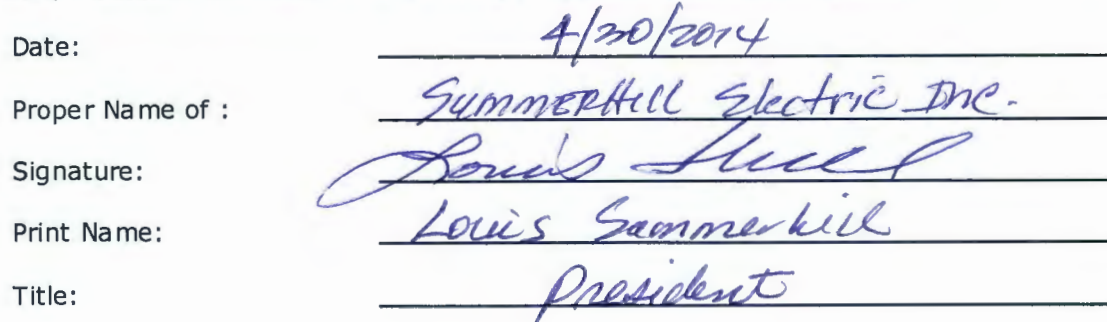 Date: 4/30/2014
Proper Name of : SummerHill Electric Inc.
Signature: Louis
Print Name: Louis Summerhill
Title: President